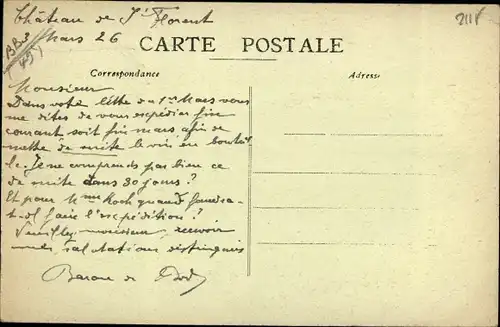 Château de St Florent
3 Mars 26
2118
CARTE POSTALE
Correspondance
Adresse
Monsieur
Dans votre lettre du 1er Mars vous
me dites de vous expédier fin
courant soit fin mars, afin de
mettre de suite le vin en bouteil
le. Je ne comprends pas bien ce
de suite dans 30 jours?
Et pour Mme Koch quand faudra-
t-il faire l'expédition?
Veuillez, monsieur, recevoir
mes salutations distinguées
Baron de